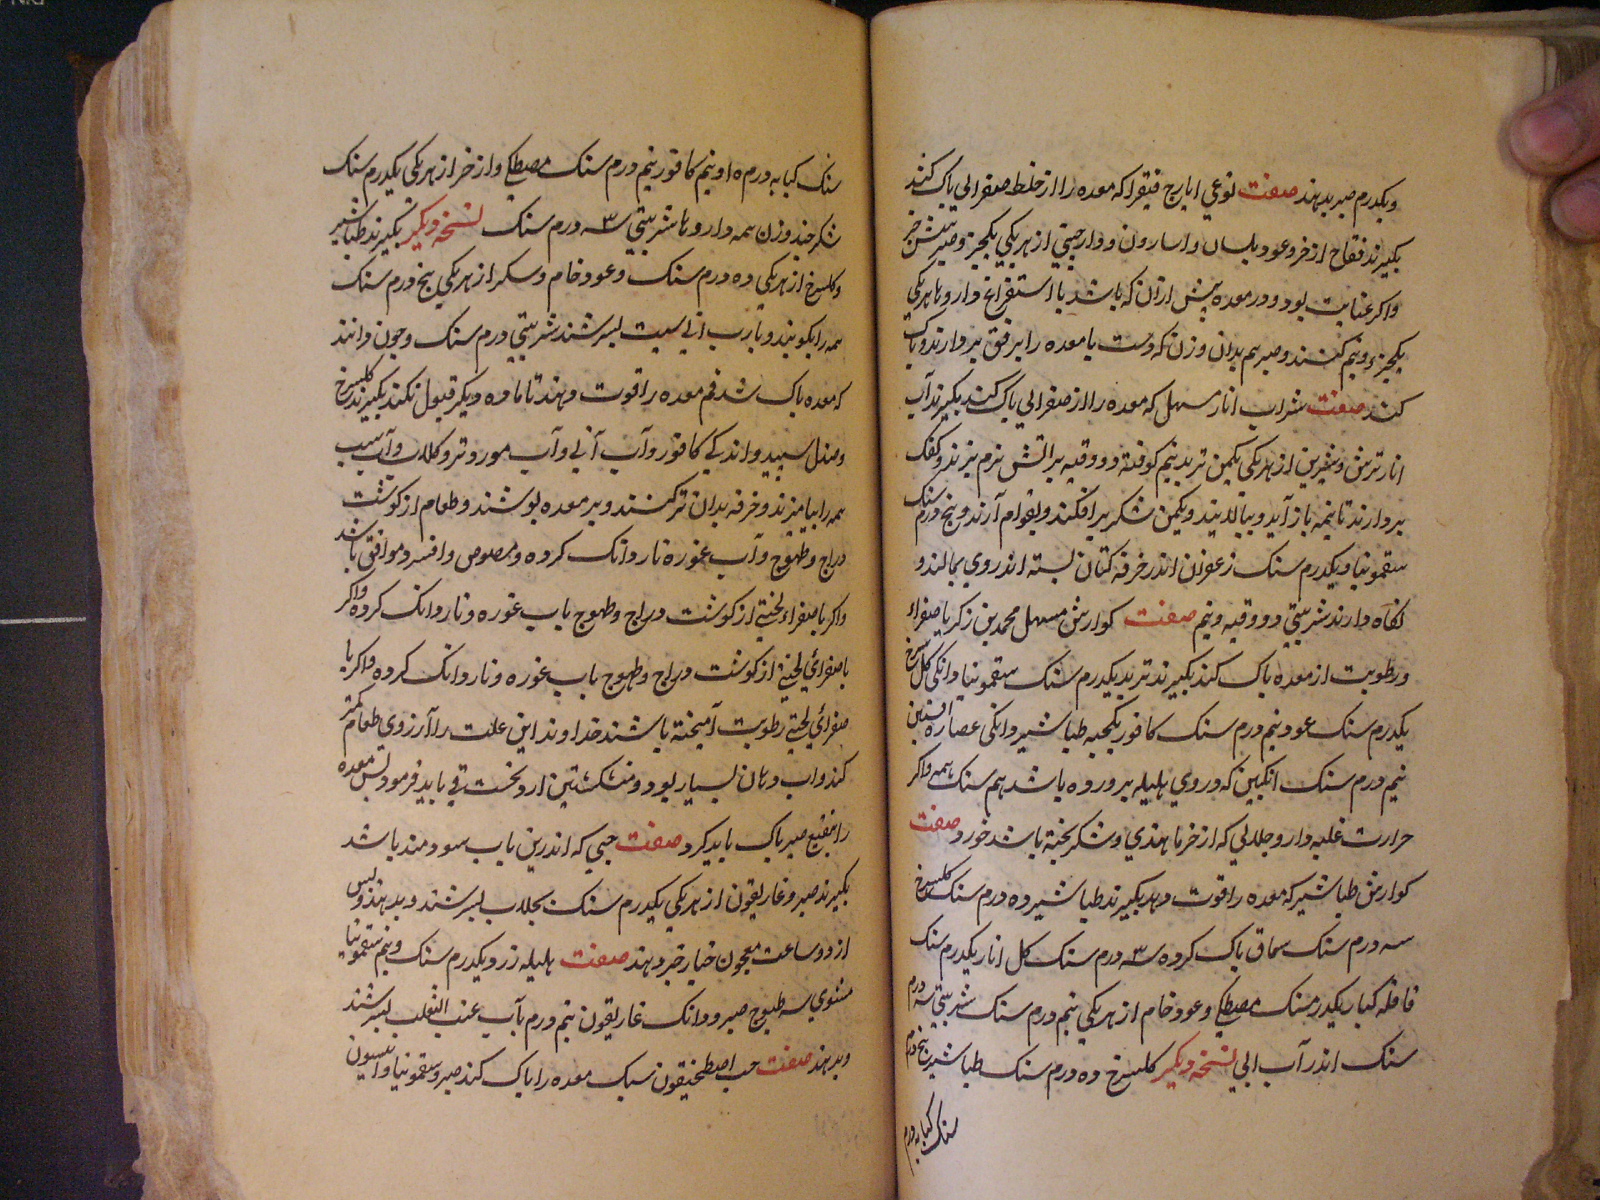 ویکدرم صبر بدهند صفت نوعی ایارج فیقرا که معده را از خلط صفرایی پاک کند
بکیرند فقاح اذخر و عود بلسان و اسارون و دارچینی از هر یکی یکجزو و صبر شش جزو
واکر عنایت بود و در معده بیش ازان که باشد با استفراغ داروها هر یکی
یکجزء و نیم کنند و صبر هم بدان وزن که دست یا معده را برفق بردارند و پاک
کند صفت شراب انار مسهل که معده را از صفرایی پاک کند بکیرند آب
انار ترش و شیرین از هر یکی یکمن تربد نیم کوفته دو وقیه بر اتش نرم بپزند و کفک
بردارند تا بنیمه باز آید و بپالایند و یکمن شکر بر افکنند و بقوام آرند و پنج درم سنک
سقمونیا و یکدرم سنک زعفران اندر خرقه کتان بسته اندر وی بمالند و
نکاه دارند شربتی دو وقیه و نیم صفت کوارش مسهل محمد بن زکریا صفراء
ورطوبت از معده پاک کند بکیرند تربد یکدرم سنک سقمونیا دانکی کل سرخ
یکدرم سنک عود نیم درم سنک کافور یکحبه طباشیر دانکی عصاره افسنتین
نیم درم سنک انکبین که در وی هلیله پرورده باشد هم سنک همه واکر
حرارت غلبه دارد جلابی که از خرما هندی و شکر پخته باشد خورد صفت
کوارش طباشیر که معده را قوت دهد بکیرند طباشیر ده درم سنک کلسرخ
سه درم سنک سماق پاک کرده سه ۳ درم سنک کل انار یکدرم سنک
قاقله کبار یکدرمسنک مصطکی و عود خام از هر یکی نیم درم سنک شربتی سه درم
سنک اندر آب ابی نسخه دیکر کلسرخ ده درم سنک طباشیر پنج درم
سنک کبابه درم
سنک کبابه درم ۵ او نیم کافور نیم درم سنک مصطکی و اذخر از هر یکی یکدرم سنک
شکر چند وزن همه داروها شربتی سه ۳ درم سنک نسخه دیکر بکیرند طباشیر
وکلسرخ از هر یکی ده درم سنک و عود خام و سکر از هر یکی پنج درم سنک
همه را بکوبند و بارب ابی سست بسرشند شربتی درم سنک و چون دانند
که معده پاک شد فم معده را قوت دهند تا ماده دیکر قبول نکند بکیرند کلسرخ
وصندل سپید و اندکی کافور و آب آبی و آب مورد تر و کلاب و آب سیب
همه را بیامیزند و خرقه بدان تر کنند و بر معده پوشند و طعام از کوشت
دراج و طیهوج و آب غوره نار دانک کرده و مصوص و افسرد موافق باشد
واکر با صفراء لختی از کوشت دراج و طیهوج باب غوره و نار دانک کرده واکر
با صفرائی لختی از کوشت دراج و طیهوج باب غوره و نار دانک کرده واکر با
صفرائی لختی رطوبت آمیخته باشند خداوند این علت را آرزوی طعام کمتر
کند و اب دهان بسیار بود و منش کشتن ارد نخست قی باید فرمود پس معده
را بنقیع صبر پاک باید کرد صفت حبی که اندرین باب سودمند باشد
بکیرند صبر و غاریقون از هر یکی یکدرم سنک بجلاب بسرشند و بدهند و پس
از دو ساعت معجون خیار خبر دهند صفت هلیله زرد یکدرم سنک و نیم سقمونیا
مشوی سه طسوج صبر دو دانک غاریقون نیم درم بآب عنب الثعلب بسرشند
وبدهند صفت حب اصطمخیقون سبک معده را پاک کند صبر و سقمونیا و انیسون